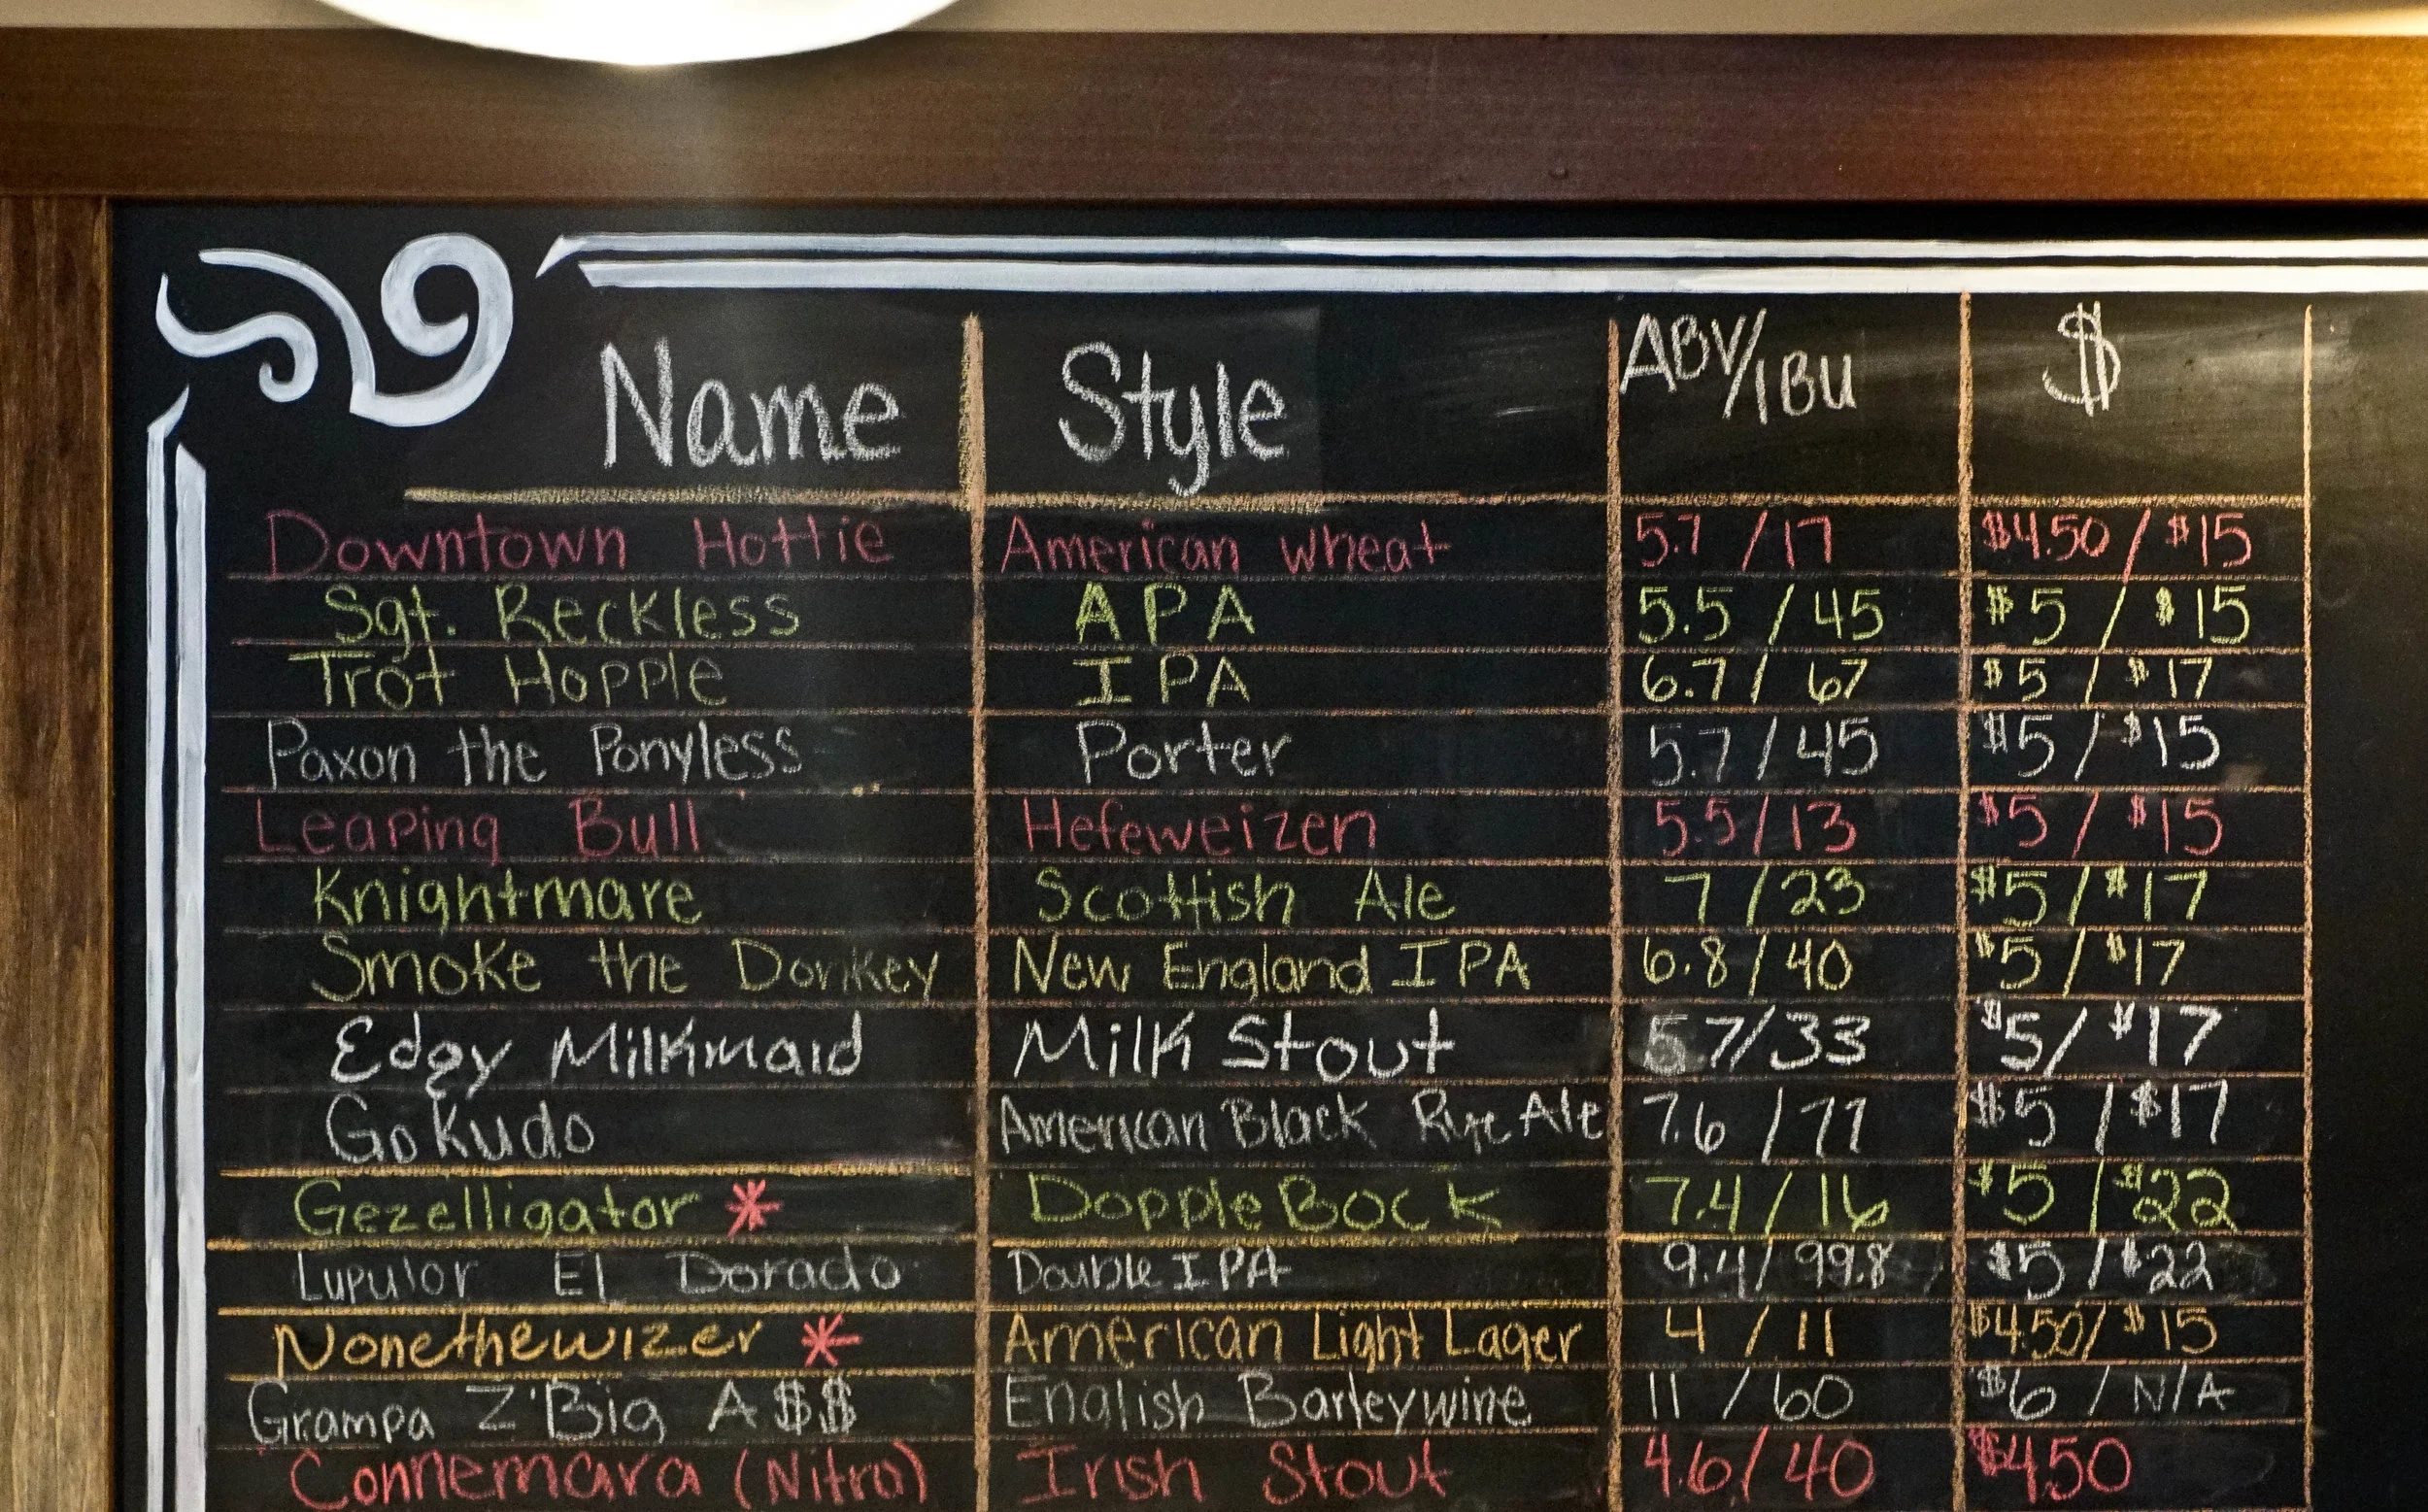 Name Style ABV/IBU $
Downtown Hottie American wheat 5.7 / 17 $4.50 / $15
Sgt. Reckless APA 5.5 / 45 $5 / $15
Trot Hopple IPA 6.7 / 67 $5 / $17
Paxon the Ponyless Porter 5.7 / 45 $5 / $15
Leaping Bull Hefeweizen 5.5 / 13 $5 / $15
Knightmare Scottish Ale 7 / 23 $5 / $17
Smoke the Donkey New England IPA 6.8 / 40 $5 / $17
Edgy Milkmaid Milk Stout 5.7/33 $5/ $17
Gokudo American Black Rye Ale 7.6 / 77 $5 / $17
Gezelligator * Dopple Bock 7.4 / 16 $5 / $22
Lupulor El Dorado Double IPA 9.4 / 99.8 $5 / $22
Nonethewizer * American Light Lager 4 / 11 $4.50/ $15
Grampa Z'Big A$$ English Barleywine 11 / 60 $6 / N/A
Connemara (Nitro) Irish Stout 4.6 / 40 $4.50